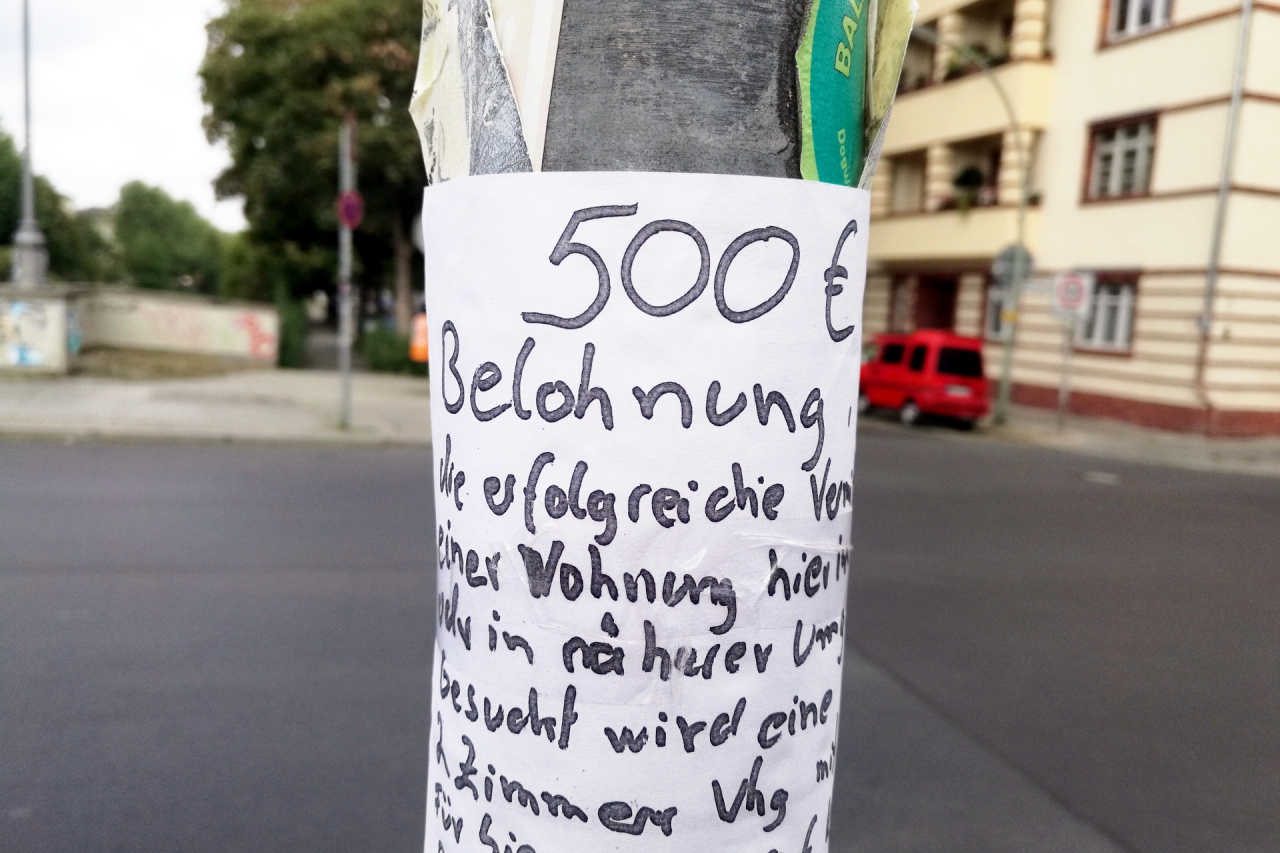 500 €
Belohnung,
die erfolgreiche Verm
einer Wohnung hier in
oder in näherer Umg
Gesucht wird eine
2 Zimmer Whg mit
Für Sie
BAZ